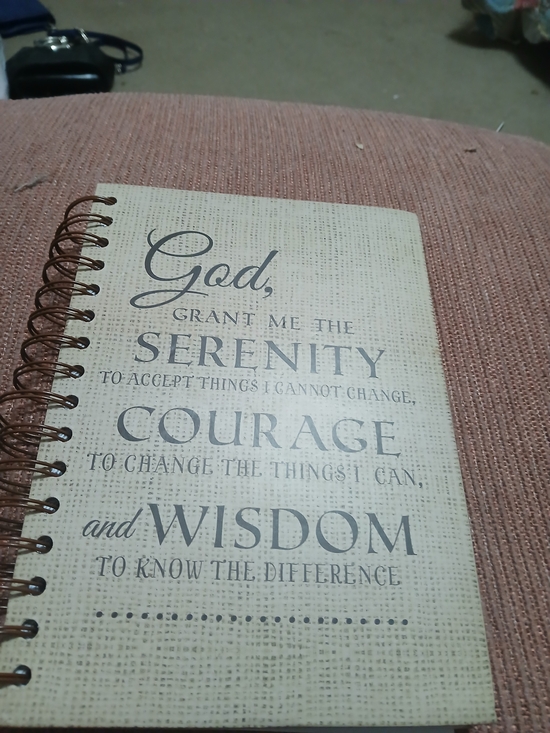 God,
GRANT ME THE
SERENITY
TO ACCEPT THINGS I CANNOT CHANGE,
COURAGE
TO CHANGE THE THINGS I CAN,
and WISDOM
TO KNOW THE DIFFERENCE